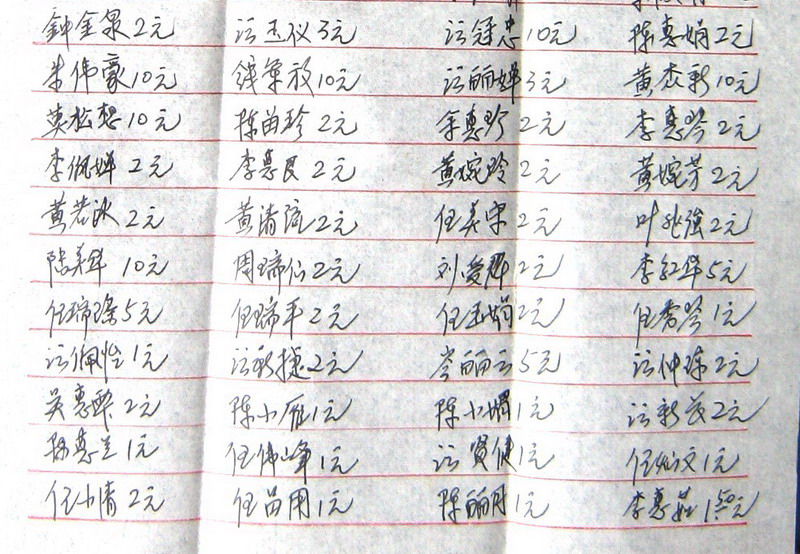 鈡金泉2元 沍玉仪3元 沍冠忠10元 陈惠娟2元
朱伟豪10元 钱军放10元 沍丽婵3元 黄杰新10元
莫松想10元 陈苗珍2元 余惠珍2元 李惠芩2元
李佩婵2元 李惠良2元 黄婉玲2元 黄婉芳2元
黄若冰2元 黄清流2元 任美宋2元 叶兆强2元
陆美华10元 周瑞仙2元 刘爱群2元 李红华5元
任瑞琼5元 任瑞平2元 任玉娟2元 任秀芩1元
沍佩怡1元 沍新捷2元 岑丽云5元 沍仲珠2元
吴惠群2元 陈小雁1元 陈小媚1元 沍新茂2元
孙惠兰1元 任伟峰1元 沍贤健1元 任灿文1元
任小倩2元 任苗用1元 陈丽月1元 李惠莊1.50元